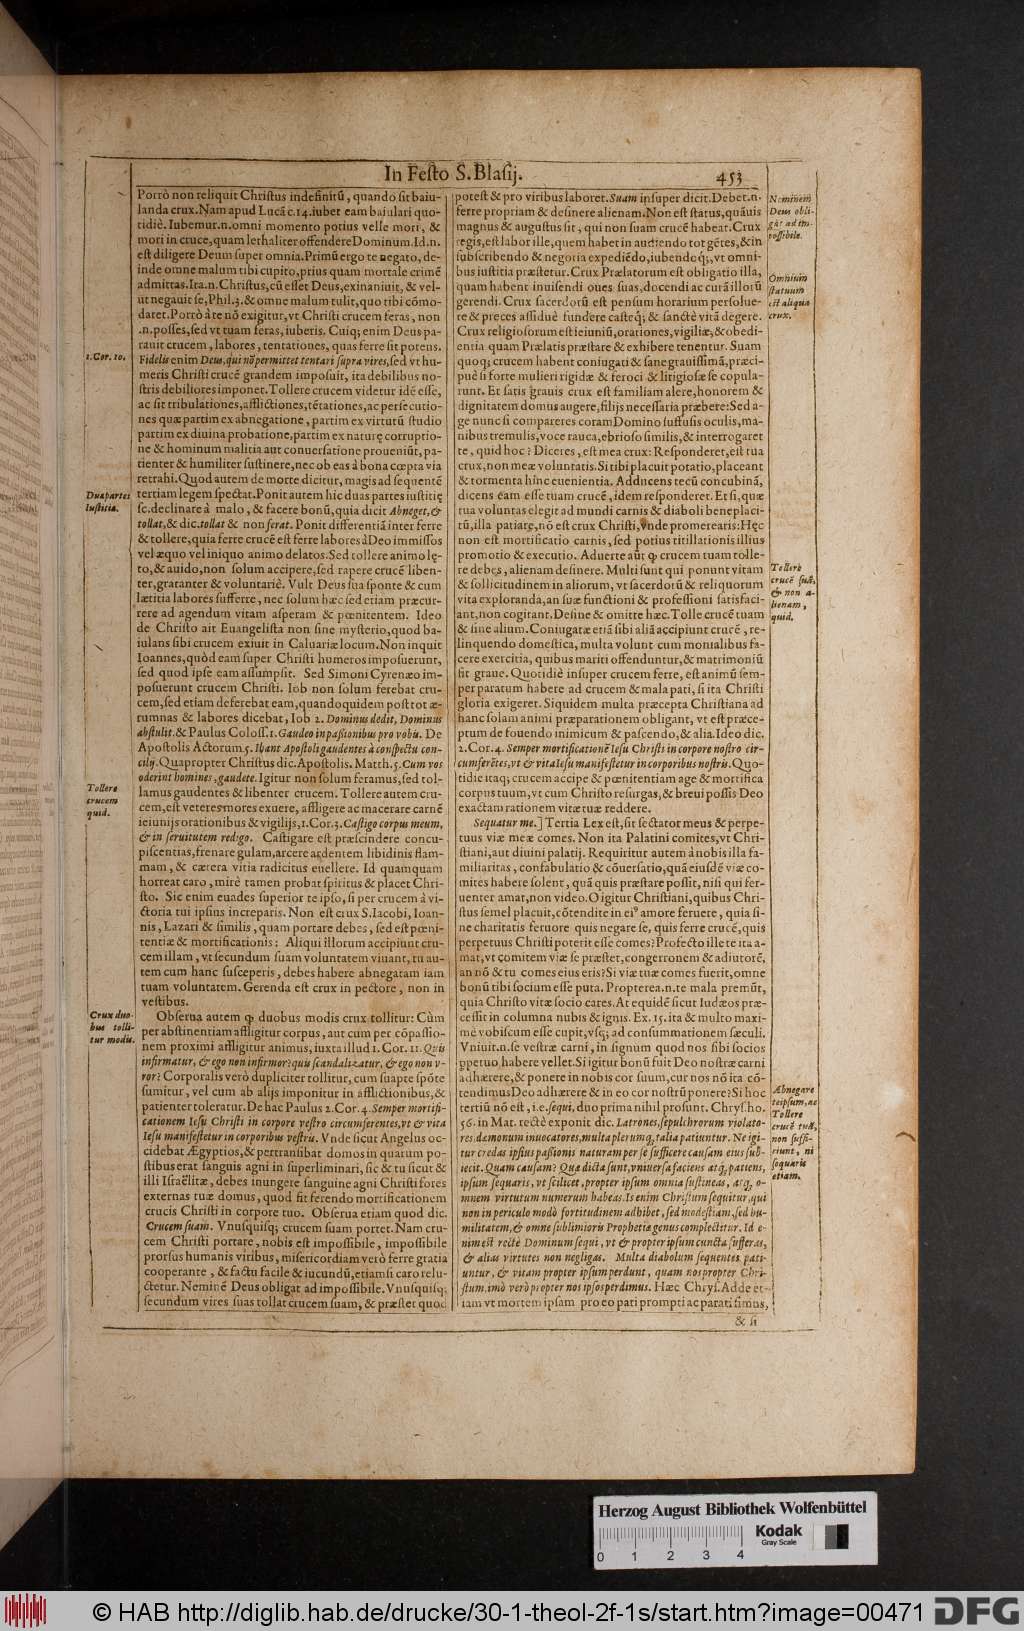 In Feſto S. Blaſij.
453
Porrò non reliquit Chriſtus indefinitũ, quando ſit baiu-
landa crux. Nam apud Lucã c. 14. iubet eam baiulari quo-
tidiè. Iubemur .n. omni momento potius velle mori, &
mori in cruce, quam lethaliter offendere Dominum. Id .n.
eſt diligere Deum ſuper omnia. Primũ ergo te negato, de-
inde omne malum tibi cupito, prius quam mortale crimẽ
admittas. Ita .n. Chriſtus, cũ eſſet Deus, exinaniuit, & vel-
ut negauit ſe, Phil. 3. & omne malum tulit, quo tibi cõmo-
daret. Porrò à te nõ exigitur, vt Chriſti crucem feras, non
.n. poſſes, ſed vt tuam feras, iuberis. Cuiq; enim Deus pa-
rauit crucem, labores, tentationes, quas ferre ſit potens.
Fidelis enim Deus, qui nõ permittet tentari ſupra vires, ſed vt hu-
meris Chriſti crucẽ grandem impoſuit, ita debilibus no-
ſtris debiliores imponet. Tollere crucem videtur idẽ eſſe,
ac ſit tribulationes, afflictiones, tẽtationes, ac perſecutio-
nes quæ partim ex abnegatione, partim ex virtutũ ſtudio
partim ex diuina probatione, partim ex naturę corruptio-
ne & hominum malitia aut conuerſatione proueniũt, pa-
tienter & humiliter ſuſtinere, nec ob eas à bona cœpta via
retrahi. Quod autem de morte dicitur, magis ad ſequentẽ
tertiam legem ſpectat. Ponit autem hic duas partes iuſtitię
ſc. declinare à malo, & facere bonũ, quia dicit Abneget, &
tollat, & dic. tollat & non ferat. Ponit differentiã inter ferre
& tollere, quia ferre crucẽ eſt ferre labores à Deo immiſſos
vel æquo vel iniquo animo delatos. Sed tollere animo lę-
to, & auido, non ſolum accipere, ſed rapere crucẽ liben-
ter, gratanter & voluntariè. Vult Deus ſua ſponte & cum
lætitia labores ſufferre, nec ſolum hæc ſed etiam præcur-
rere ad agendum vitam aſperam & pœnitentem. Ideo
de Chriſto ait Euangeliſta non ſine myſterio, quod ba-
iulans ſibi crucem exiuit in Caluariæ locum. Non inquit
Ioannes, quòd eam ſuper Chriſti humeros impoſuerunt,
ſed quod ipſe eam aſſumpſit. Sed Simoni Cyrenæo im-
poſuerunt crucem Chriſti. Iob non ſolum ferebat cru-
cem, ſed etiam deferebat eam, quandoquidem poſt tot æ-
rumnas & labores dicebat, Iob 2. Dominus dedit, Dominus
abſtulit. & Paulus Coloſſ. 1. Gaudeo in paſſionibus pro vobis. De
Apoſtolis Actorum 5. Ibant Apoſtoli gaudentes à conſpectu con-
cilij. Quapropter Chriſtus dic. Apoſtolis. Matth. 5. Cum vos
oderint homines, gaudete. Igitur non ſolum feramus, ſed tol-
lamus gaudentes & libenter crucem. Tollere autem cru-
cem, eſt veteres mores exuere, affligere ac macerare carnẽ
ieiunijs orationibus & vigilijs, 1. Cor. 3. Caſtigo corpus meum,
& in ſeruitutem redigo. Caſtigare eſt præſcindere concu-
piſcentias, frenare gulam, arcere ardentem libidinis flam-
mam, & cætera vitia radicitus euellere. Id quamquam
horreat caro, mirè tamen probat ſpiritus & placet Chri-
ſto. Sic enim euades ſuperior te ipſo, ſi per crucem à vi-
ctoria tui ipſius increparis. Non eſt crux S. Iacobi, Ioan-
nis, Lazari & ſimilis, quam portare debes, ſed eſt pœni-
tentiæ & mortificationis: Aliqui illorum accipiunt cru-
cem illam, vt ſecundum ſuam voluntatem viuant, tu au-
tem cum hanc ſuſceperis, debes habere abnegatam iam
tuam voluntatem. Gerenda eſt crux in pectore, non in
veſtibus.
Obſerua autem ꝙ duobus modis crux tollitur: Cùm
per abſtinentiam affligitur corpus, aut cum per cõpaſſio-
nem proximi affligitur animus, iuxta illud 1. Cor. 11. Quis
infirmatur, & ego non infirmor? quis ſcandalizatur, & ego non v-
ror? Corporalis verò dupliciter tollitur, cum ſuapte ſpõte
ſumitur, vel cum ab alijs imponitur in afflictionibus, &
patienter toleratur. De hac Paulus 2. Cor. 4. Semper mortifi-
cationem Ieſu Chriſti in corpore veſtro circumferentes, vt & vita
Ieſu manifeſtetur in corporibus veſtris. Vnde ſicut Angelus oc-
cidebat Ægyptios, & pertranſibat domos in quarum po-
ſtibus erat ſanguis agni in ſuperliminari, ſic & tu ſicut &
illi Iſraëlitæ, debes inungere ſanguine agni Chriſti fores
externas tuæ domus, quod fit ferendo mortificationem
crucis Chriſti in corpore tuo. Obſerua etiam quod dic.
Crucem ſuam. Vnuſquiſq; crucem ſuam portet. Nam cru-
cem Chriſti portare, nobis eſt impoſſibile, impoſſibile
prorſus humanis viribus, miſericordiam verò ferre gratia
cooperante, & factu facile & iucundũ, etiamſi caro relu-
ctetur. Neminẽ Deus obligat ad impoſſibile. Vnuſquiſq;
ſecundum vires ſuas tollat crucem ſuam, & præſtet quod
1. Cor. 10.
Duæ partes
Iuſtitiæ.
Tollere
crucem
quid.
Crux duo-
bus tolli-
tur modis.
poteſt & pro viribus laboret. Suam inſuper dicit. Debet .n.
ferre propriam & deſinere alienam. Non eſt ſtatus, quãuis
magnus & auguſtus ſit, qui non ſuam crucẽ habeat. Crux
regis, eſt labor ille, quem habet in audiendo tot gẽtes, & in
ſubſcribendo & negotia expediẽdo, iubendoq;, vt omni-
bus iuſtitia præſtetur. Crux Prælatorum eſt obligatio illa,
quam habent inuiſendi oues ſuas, docendi ac curã illorũ
gerendi. Crux ſacerdotũ eſt penſum horarium perſolue-
re & preces aſſiduè fundere caſtęq; & ſanctè vitã degere.
Crux religioſorum eſt ieiuniũ, orationes, vigiliæ, & obedi-
entia quam Prælatis præſtare & exhibere tenentur. Suam
quoq; crucem habent coniugati & ſane grauiſſimã, præci-
puè ſi forte mulieri rigidæ & feroci & litigioſæ ſe copula-
runt. Et ſatis grauis crux eſt familiam alere, honorem &
dignitatem domus augere, filijs neceſſaria præbere: Sed a-
ge nunc ſi compareres coram Domino ſuffuſis oculis, ma-
nibus tremulis, voce rauca, ebrioſo ſimilis, & interrogaret
te, quid hoc? Diceres, eſt mea crux: Reſponderet, eſt tua
crux, non meæ voluntatis. Si tibi placuit potatio, placeant
& tormenta hinc euenientia. Adducens tecũ concubinã,
dicens eam eſſe tuam crucẽ, idem reſponderet. Et ſi, quæ
tua voluntas elegit ad mundi carnis & diaboli beneplaci-
tũ, illa patiare, nõ eſt crux Chriſti, vnde promerearis: Hęc
non eſt mortificatio carnis, ſed potius titillationis illius
promotio & executio. Aduerte aũt ꝙ crucem tuam tolle-
re debes, alienam deſinere. Multi ſunt qui ponunt vitam
& ſollicitudinem in aliorum, vt ſacerdotũ & reliquorum
vita exploranda, an ſuæ functioni & profeſſioni ſatisfaci-
ant, non cogitant. Deſine & omitre hæc. Tolle crucẽ tuam
& ſine alium. Coniugatæ etiã ſibi aliã accipiunt crucẽ, re-
linquendo domeſtica, multa volunt cum monialibus fa-
cere exercitia, quibus mariti offenduntur, & matrimoniũ
fit graue. Quotidiè inſuper crucem ferre, eſt animũ ſem-
per paratum habere ad crucem & mala pati, ſi ita Chriſti
gloria exigeret. Siquidem multa præcepta Chriſtiana ad
hanc ſolam animi præparationem obligant, vt eſt præce-
ptum de fouendo inimicum & paſcendo, & alia. Ideo dic.
2. Cor. 4. Semper mortificationẽ Ieſu Chriſti in corpore noſtro cir-
cumferẽtes, vt & vita Ieſu manifeſtetur in corporibus noſtris. Quo-
tidie itaq; crucem accipe & pœnitentiam age & mortifica
corpus tuum, vt cum Chriſto reſurgas, & breui poſſis Deo
exactam rationem vitæ tuæ reddere.
Sequatur me.] Tertia Lex eſt, ſit ſectator meus & perpe-
tuus viæ meæ comes. Non ita Palatini comites, vt Chri-
ſtiani, aut diuini palatij. Requiritur autem à nobis illa fa-
miliaritas, confabulatio & cõuerſatio, quã eiuſdẽ viæ co-
mites habere ſolent, quã quis præſtare poſſit, niſi qui fer-
uenter amat, non video. O igitur Chriſtiani, quibus Chri-
ſtus ſemel placuit, cõtendite in eiꝰ amore feruere, quia ſi-
ne charitatis feruore quis negare ſe, quis ferre crucẽ, quis
perpetuus Chriſti poterit eſſe comes? Profecto ille te ita a-
mat, vt comitem viæ ſe præſtet, congerronem & adiutorẽ,
an nõ & tu comes eius eris? Si viæ tuæ comes fuerit, omne
bonũ tibi ſocium eſſe puta. Propterea .n. te mala premũt,
quia Chriſto vitæ ſocio cares. At equidẽ ſicut Iudæos præ-
ceſſit in columna nubis & ignis. Ex. 15. ita & multo maxi-
mè vobiſcum eſſe cupit, vſq; ad conſummationem ſæculi.
Vniuit .n. ſe veſtræ carni, in ſignum quod nos ſibi ſocios
ꝑpetuo habere vellet. Si igitur bonũ fuit Deo noſtræ carni
adhærere, & ponere in nobis cor ſuum, cur nos nõ ita cõ-
tendimus Deo adhærere & in eo cor noſtrũ ponere? Si hoc
tertiũ nõ eſt, i.e. ſequi, duo prima nihil proſunt. Chryſ. ho.
56. in Mat. rectè exponit dic. Latrones, ſepulchrorum violato-
res, dæmonum inuocatores, multa plerumq, talia patiuntur. Ne igi-
tur credas ipſius paſſionis naturam per ſe ſufficere cauſam eius ſub-
iecit. Quam cauſam? Quæ dicta ſunt, vniuerſa faciens atq, patiens,
ipſum ſequaris, vt ſcilicet, propter ipſum omnia ſuſtineas, atq, o-
mnem virtutum numerum habeas. Is enim Chriſtum ſequitur, qui
non in periculo modò fortitudinem adhibet, ſed modeſtiam, ſed hu-
militatem, & omne ſublimioris Prophetiæ genus complectitur. Id e-
nim eſt rectè Dominum ſequi, vt & propter ipſum cuncta ſufferas,
& alias virtutes non negligas. Multa diabolum ſequentes pati-
untur, & vitam propter ipſum perdunt, quam nos propter Chri-
ſtum, imò verò propter nos ipſos perdimus. Hæc Chryſ. Adde et-
iam vt mortem ipſam pro eo pati prompti ac parati ſimus,
& ſi
Neminem
Deus obli-
gat ad im-
poſſibile.
Omnium
ſtatuum
eſt aliqua
crux.
Tollere
crucẽ ſuã,
& non a-
lienam,
quid.
Abnegare
teipſum, ac
Tollere
crucẽ tuã,
non ſuffi-
ciunt, ni
ſequaris
etiam.
Herzog August Bibliothek Wolfenbüttel
0 1 2 3 4
Kodak
Gray Scale
© HAB http://diglib.hab.de/drucke/30-1-theol-2f-1s/start.htm?image=00471
DFG